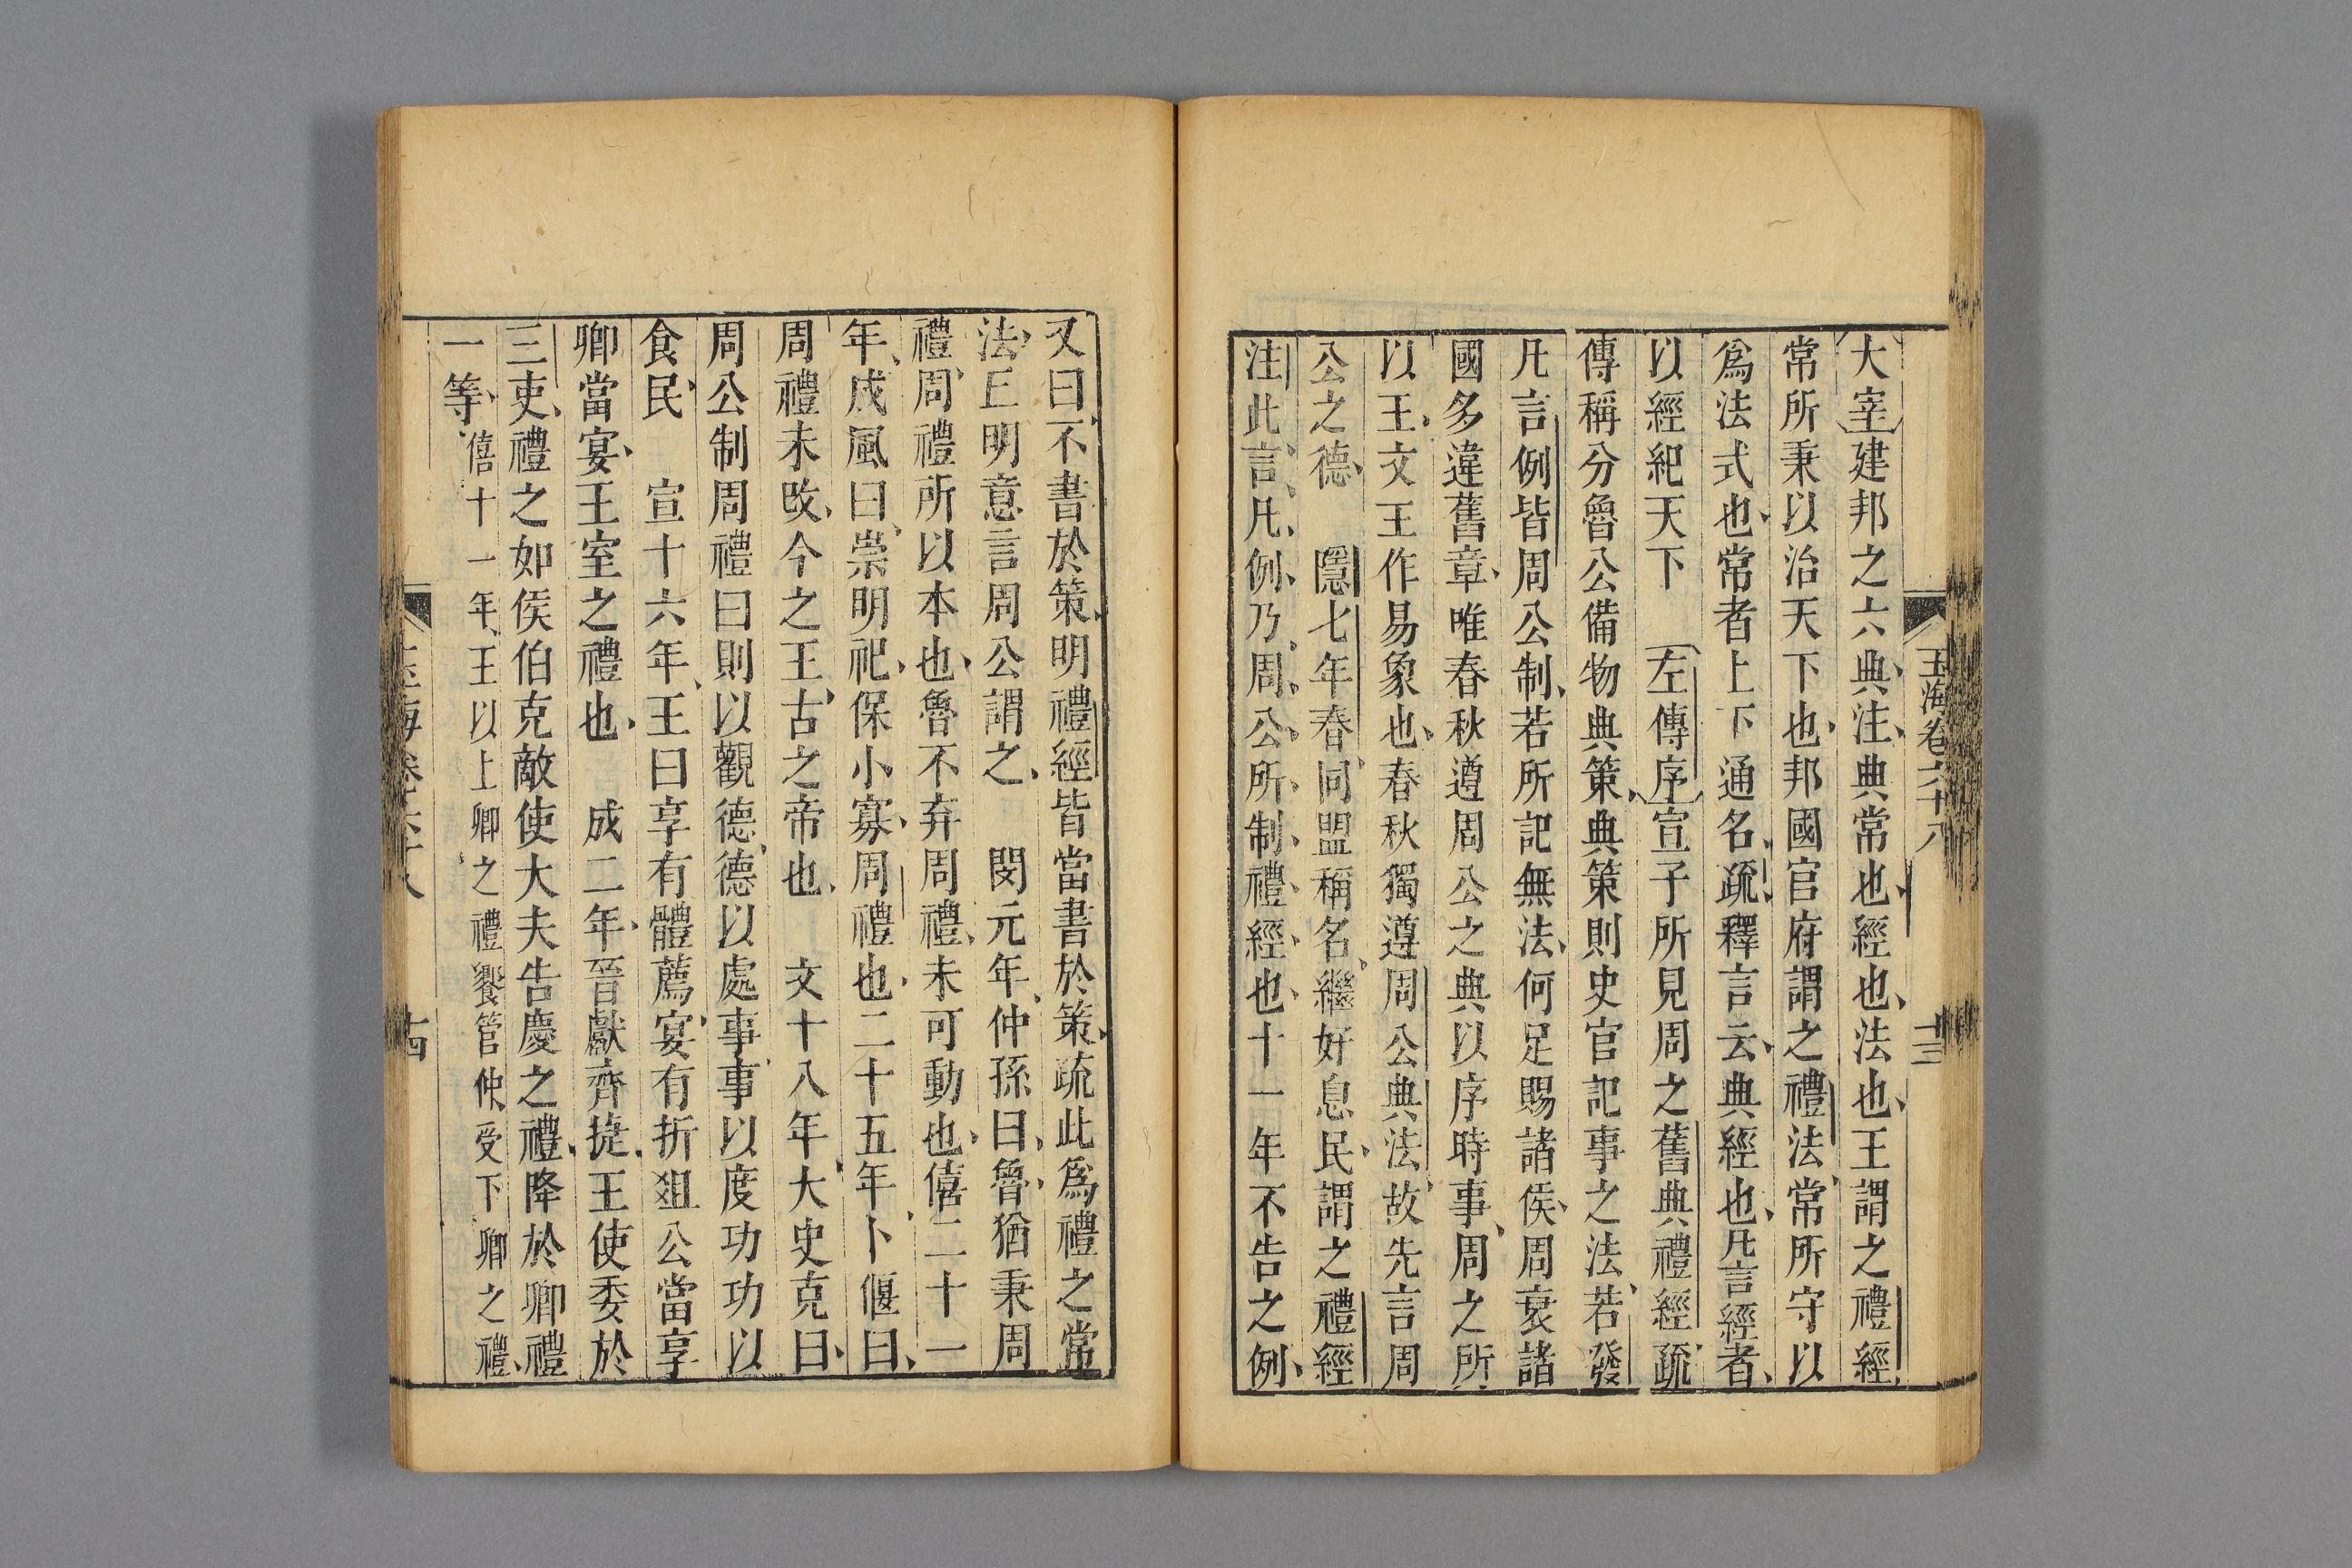 玉海卷六十八 十三
大宰建邦之六典注典常也經也法也王謂之禮經
常所秉以治天下也邦國官府謂之禮法常所守以
爲法式也常者上下通名疏釋言云典經也凡言經者
以經紀天下 左傳序宣子所見周之舊典禮經疏
傳稱分魯公備物典策典策則史官記事之法若發
凡言例皆周公制若所記無法何足賜諸侯周衰諸
國多違舊章唯春秋遵周公之典以序時事周之所
以王文王作易象也春秋獨遵周公典法故先言周
公之德 隱七年春同盟稱名繼好息民謂之禮經
注此言凡例乃周公所制禮經也十一年不告之例
又曰不書於策明禮經皆當書於策疏此爲禮之常
法丘明意言周公謂之 閔元年仲孫曰魯猶秉周
禮周禮所以本也魯不弃周禮未可動也僖二十一
年成風曰崇明祀保小寡周禮也二十五年卜偃曰
周禮未改今之王古之帝也 文十八年大史克曰
周公制周禮曰則以觀德德以處事事以度功功以
食民 宣十六年王曰享有體薦宴有折俎公當享
卿當宴王室之禮也 成二年晉獻齊捷王使委於
三吏禮之如侯伯克敵使大夫告慶之禮降於卿禮
一等僖十一年王以上卿之禮饗管仲受下卿之禮
玉海卷六十八 十四